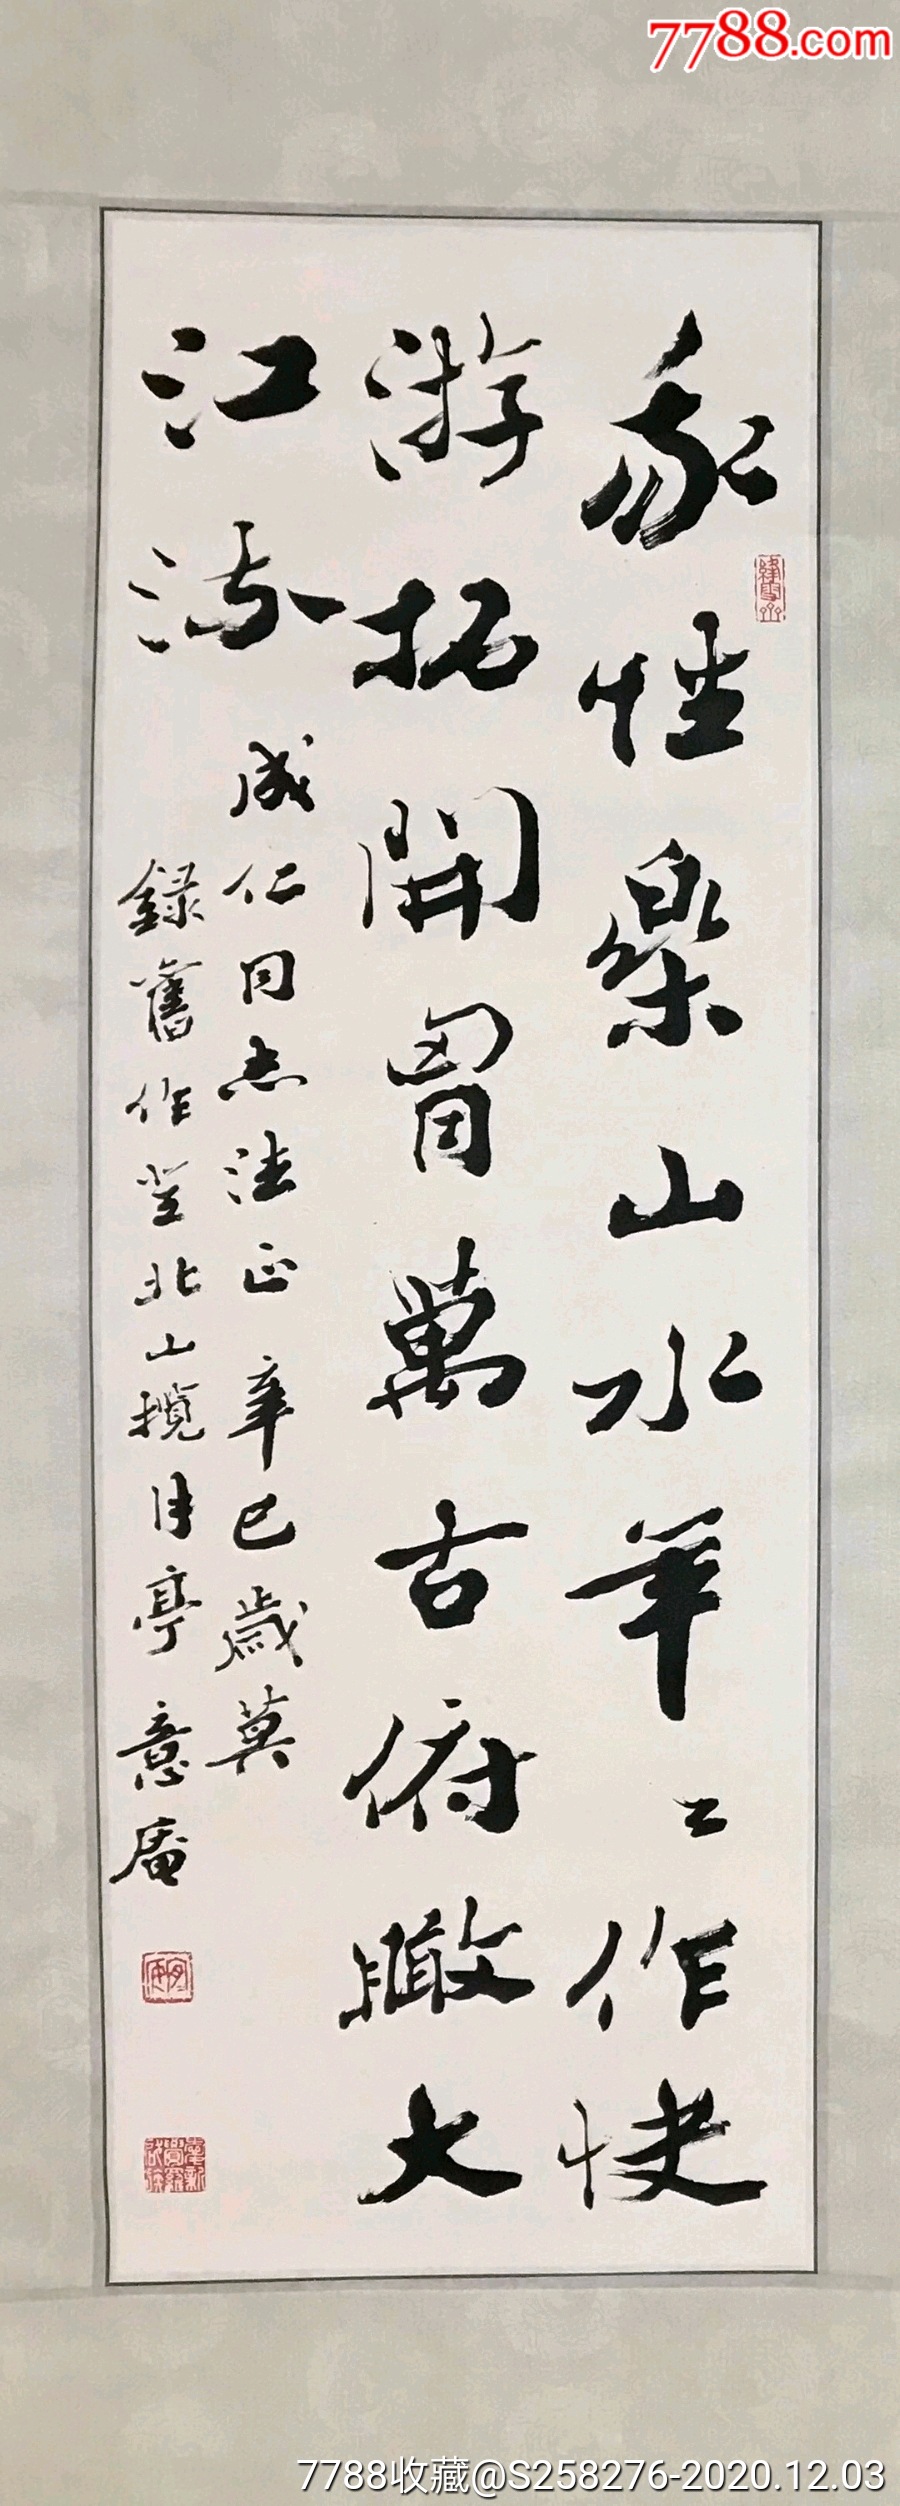 7788.com
我性樂山水年〻作快
游拓開胷萬古俯瞰大
江流
成仁同志法正 辛巳歲莫
錄舊作登北山攬月亭 意庵
7788收藏@S258276-2020.12.03